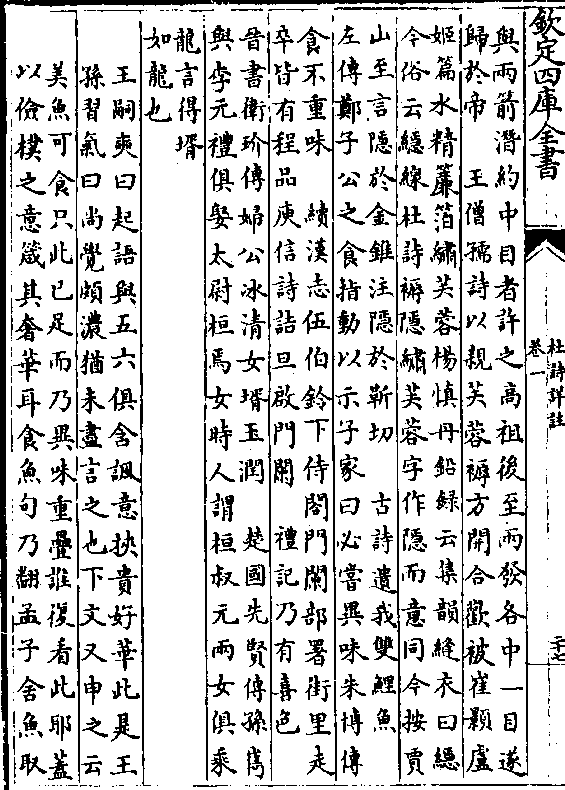 欽定四庫全書
杜詩詳註
卷一
二十七
與兩箭潛約中目者許之高祖後至兩發各中一目遂
歸於帝　王僧孺詩以親芙蓉褥方開合歡被崔顥盧
姬篇水精簾箔繡芙蓉楊慎丹鉛録云集韻縫衣曰縕
今俗云縕線杜詩褥隱繡芙蓉字作隱而意同今按賈
山至言隱於金錐注隱於靳切　古詩遺我雙鯉魚
左傳鄭子公之食指動以示子家曰必嘗異味朱博傳
食不重味　續漢志伍伯鈴下侍閤門闌部署街里走
卒皆有程品庾信詩詰旦啟門闌　禮記乃有喜色
晉書衛玠傳婦公冰清女壻玉潤　楚國先賢傳孫儁
與李元禮俱娶太尉桓焉女時人謂桓叔元兩女俱乘
龍言得壻
如龍也
王嗣奭曰起語與五六俱含諷意挾貴好華此是王
孫習氣曰尚覺頗濃猶未盡言之也下文又申之云
美魚可食只此已足而乃異味重疊誰復看此耶蓋
以儉樸之意箴其奢華耳食魚句乃翻孟子舍魚取